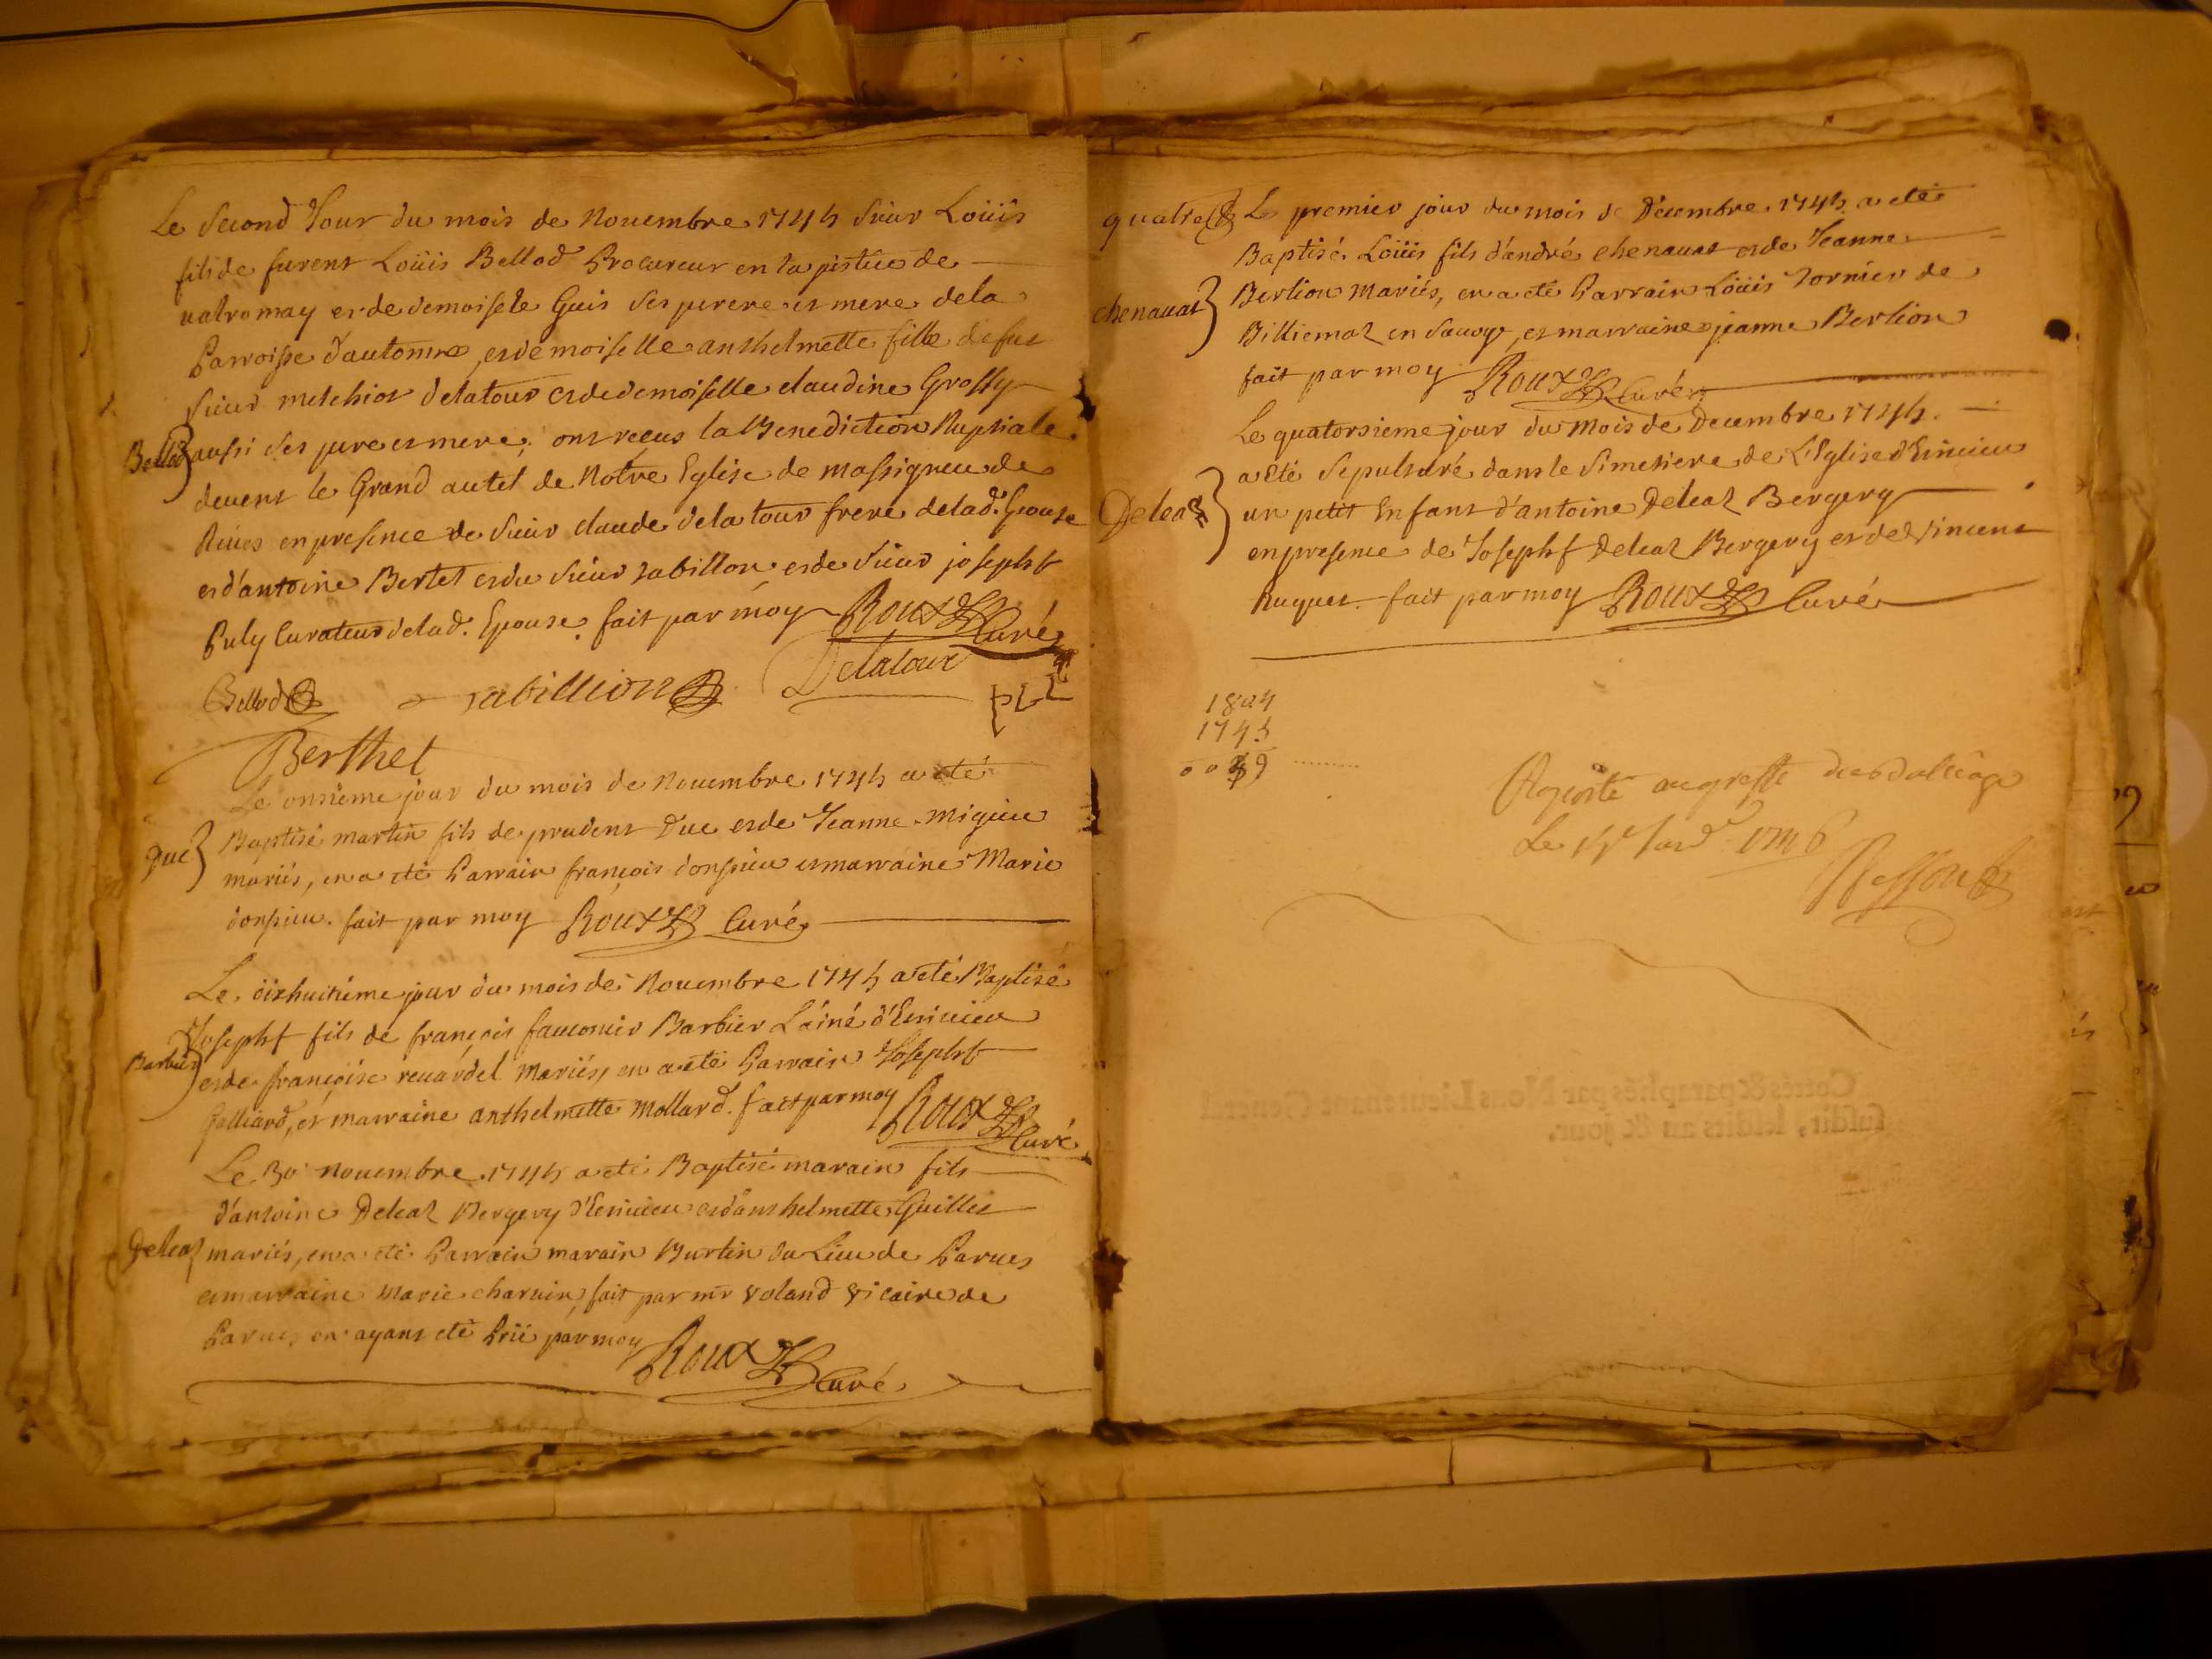 Le second Jour du mois de Novembre 1745 sieur Loüis
fils de furent Loüis Bellod Procureur en la justice de
valromay et de demoiselle Guis ses perere et mere de la
Parroisse d'automne, et demoiselle anthelmette fille de fut
sieur melchior delatour et de demoiselle claudine Grossy
Bellod aussi ses pere et mere, ont reçus la Benediction Nuptiale
devent le Grand autel de Notre Eglise de massigneu de
Rives en presence de sieur claude delatour frere de lad. Epouse
et d'antoine Bertet et du sieur sabillon et de sieur josepht
Puly Curateur de lad. Epouse. fait par moy Roux Curé
Bellod sabillion Delatour
Berthet
Le onsieme jour du mois de Novembre 1745 a eté
Duc Baptisé martin fils de prudent Duc et de Jeanne migieu
mariés, en a eté Parrain françois donpieu et marraine Marie
donpieu. fait par moy Roux Curé
Le dixhuitiéme jour du mois de Novembre 1745 a eté Baptisé
Josepht fils de françois fauconier Barbier Lainé d'Ensinieu
Barbier et de françoise revardel Mariés, en a eté Parrain Josepht
Galliard, et marraine anthelmette Mollard. fait par moy Roux Curé
Le 30 novembre 1745 a eté Baptisé marain fils
d'antoine Deleaz Bergery d'Ensinieu et d'anthelmette Guillet
Deleaz mariés, en a eté Parrain marain Burtin du Lieu de Parves
et marraine Marie charvin, fait par mr voland vicaire de
Parves en ayant eté Prié par moy Roux Curé
quatre Le premier jour du mois de Decembre 1745 a eté
Baptisé Loüis fils d'andré chenavat et de Jeanne
chenavat Berlion mariés, en a eté Parrain Loüis Tornier de
Billiemaz en Savoye, et marraine jeanne Berlion
fait par moy Roux Curé
Le quatorsieme jour du Mois de Decembre 1745
a eté sepulturé dans le simetiere de L'Eglise d'Ensinieu
Deleaz un petit Enfant d'antoine Deleaz Bergery
en presence de Josepht Deleaz Bergery et de Vincent
huguet. fait par moy Roux Curé
1824
1745
0079
au greffe du bailliage
Le
Cottés & paraphés par Nous Lieutenant
susdit, lesdits an & jour.